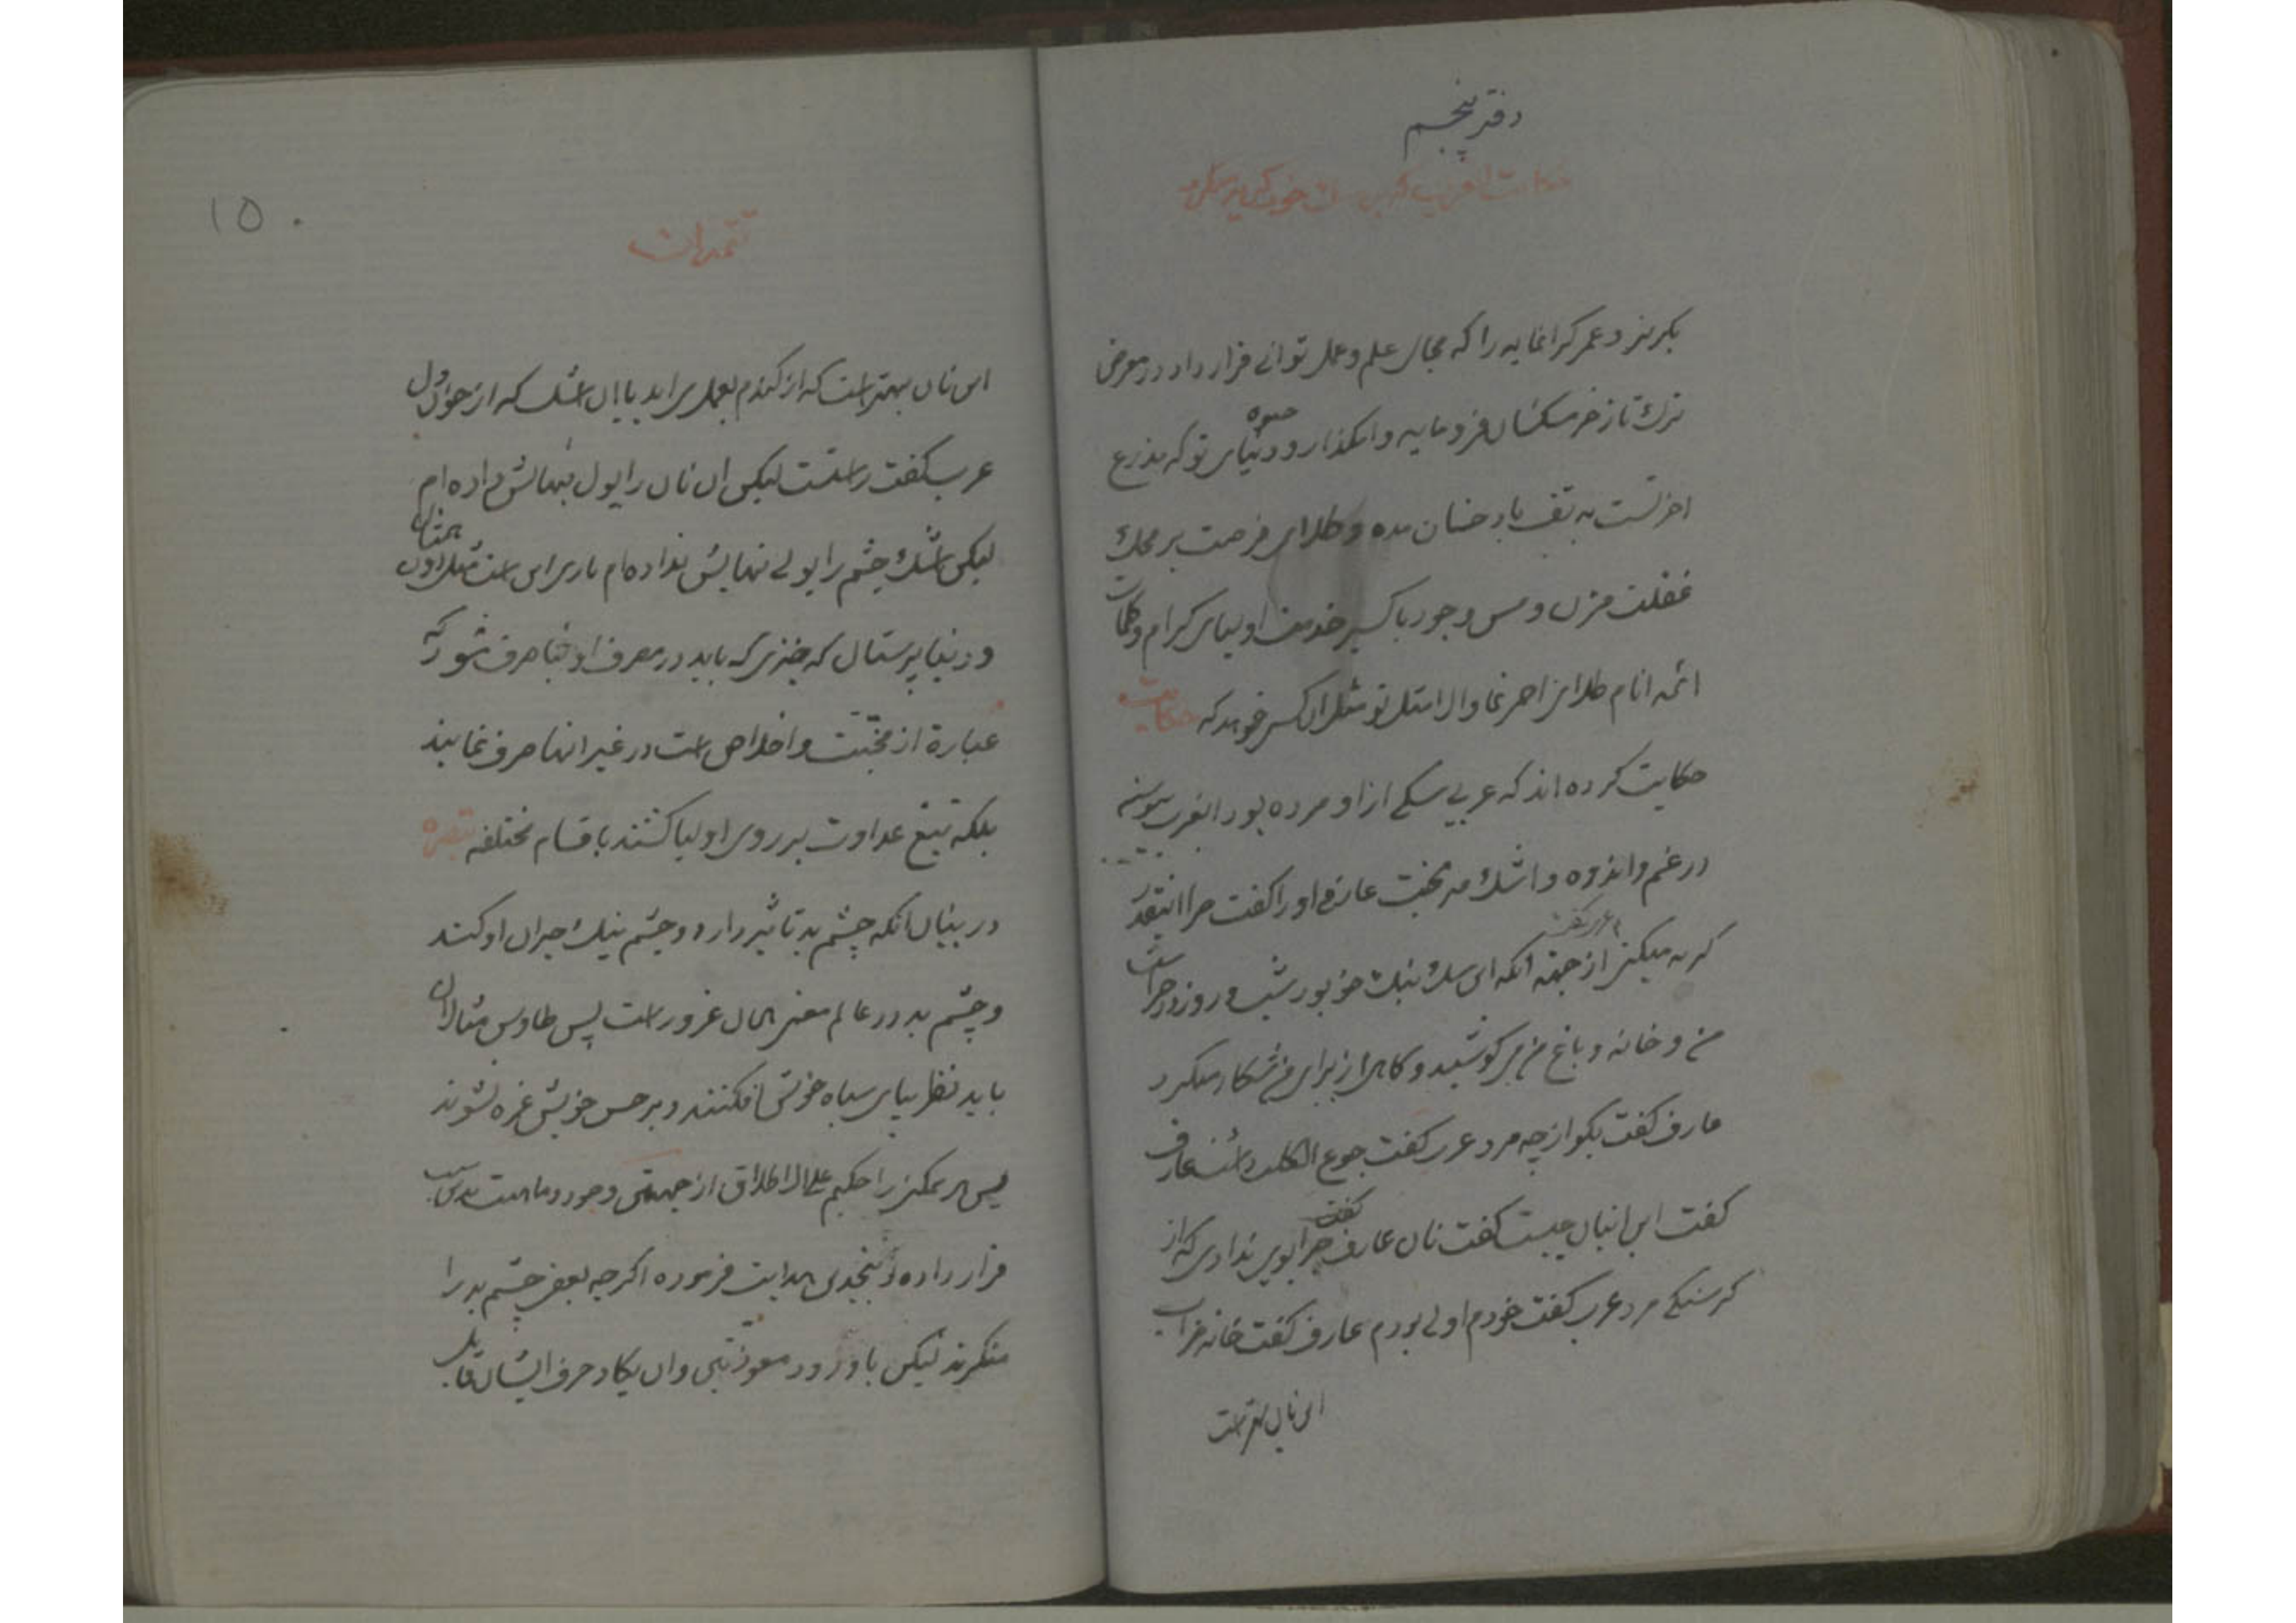 دفتر پنجم
حکایت عرب
بگریز و عمر گرانمایه را که مجال علم و عمل توانی قرار داد در معرض
ترک تاز خر مگسان فرومایه وامگذار و دنیای تو که مذرع
اخرتست به تف باد خسان مده و طلای فرصت بر محک
غفلت مزن و مس وجود باکسیر خدمت اولیای کرام و کلمات
ائمه انام طلای احمر نما والا مثل تو مثل انکس خواهد که حکایت
حکایت کرده اند که عربی سگی از او مرده بود انعرب
در غم و اندوه و اشک عارفی او را گفت چرا اینقدر
گریه میکنی از جهة انکه این سگ نیک خو بود شب و روز در حراست
من و خانه و باغ من می کوشید و کاهی از برای من شکار میکرد
عارف گفت بگو از چه مرد عرب گفت جوع الکلب داشت عارف
گفت این انبان چیست گفت نان عارف گفت چرا بوی ندادی که از
گرسنگی مرد عرب گفت خودم اولی بودم عارف گفت خانه خراب
این نان بهتر است
١٥٠
تتمه ان
این نان بهتر است که از گندم بعمل می اید یا ان اشک که از خون دل
عرب گفت راستست لیکن ان نان را پول بهایش داده ام
لیکن اشک چشم را پولی بهایش نداده ام باری این است مثل
و دنیا پرستان که چیزی که باید در مصرف اولیا صرف شود که
عبارة از محبّت و اخلاص است در غیر انها صرف نمایند
بلکه تیغ عداوت بر روی اولیا کشند باقسام مختلفه تبصره
در بیان انکه چشم بد تاثیر دارد و چشم نیک جبران او کند
و چشم بد در عالم معنی همان غرور است پس طاوس مثالان
باید نظر بپای سیاه خویش افکنند و بر حسن خویش غره نشوند
پس هر ممکن را حکیم علی الاطلاق از جهتی وجود و ماهیت
قرار داده و نجدین هدایت فرموده اگرچه بعضی چشم بد را
منکرند لیکن با ورود معوذتین و ان یکاد حرف ایشان قابل